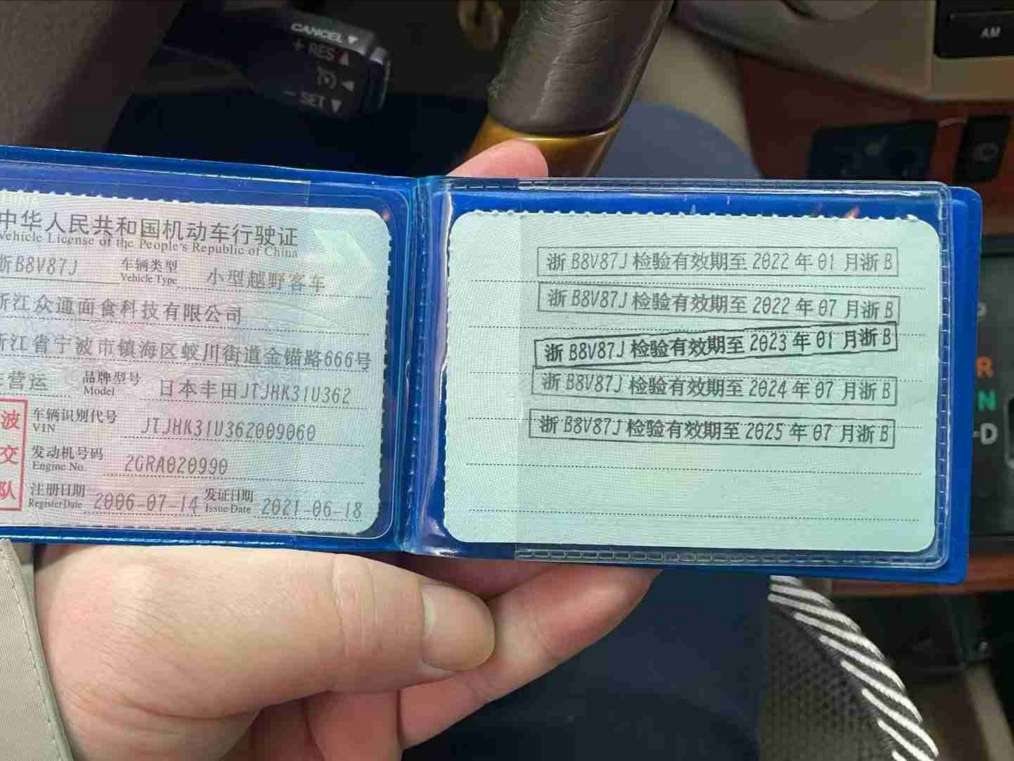 CANCEL
+ RES
- SET
AM
中华人民共和国机动车行驶证
Vehicle License of the People's Republic of China
浙B8V87J 车辆类型 小型越野客车
Vehicle Type
浙江众道面食科技有限公司
浙江省宁波市镇海区蛟川街道金锚路666号
营运 品牌型号 日本丰田JTJHK31U362
Model
车辆识别代号 JTJHK31U362009060
VIN
发动机号码 2GRA020990
Engine No.
注册日期 2006-07-14 发证日期 2021-06-18
Register Date Issue Date
波
交
队
浙B8V87J检验有效期至2022年01月浙B
浙B8V87J检验有效期至2022年07月浙B
浙B8V87J检验有效期至2023年01月浙B
浙B8V87J检验有效期至2024年07月浙B
浙B8V87J检验有效期至2025年07月浙B
R
N
-D